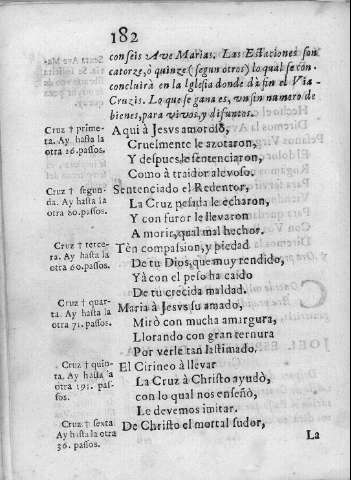 182
con seis Ave Marias. Las Estaciones son
catorze, ò quinze (segun otros) lo qual se con-
concluirà en la Iglesia donde dà fin el Via-
Cruzis. Lo que se gana es, vn sin numero de
bienes, para vivos, y difuntos.
Cruz † prime-
ta. Ay hasta la
otra 26. passos.
Aqui à Jesvs amoroso,
Cruelmente le azotaron,
Y despues le sentenciaron,
Como à traidor alevoso.
Cruz † segun-
da. Ay hasta la
otra 80. passos.
Sentenciado el Redentor,
La Cruz pesada le echaron,
Y con furor le llevaron
A morir, qual mal hechor.
Cruz † terce-
ra. Ay hasta la
otra 60. passos.
Tèn compasion, y piedad
De tu Dios, que muy rendido,
Yà con el peso ha caido
De tu crecida maldad.
Cruz † quar-
ta Ay hasta la
otra 71. passos.
Maria à Jesvs su amado,
Mirò con mucha amargura,
Llorando con gran ternura
Por verle tan lastimado.
Cruz † quin-
ta. Ay hasta la
otra 191. pas-
sos.
El Cirineo à llevar
La Cruz à Christo ayudò,
con lo qual nos enseñò,
Le devemos imitar.
Cruz † sexta
Ay hasta la otra
36. passos.
De Christo el mortal sudor,
La